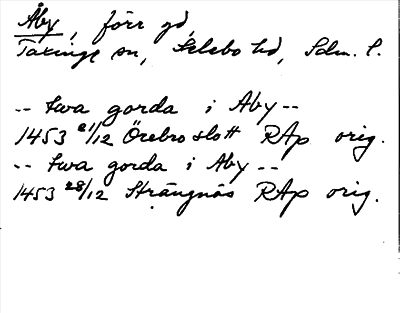 Åby, förr gd,
Taxinge sn, Selebo hd, Sdm. l.
-- twa gorda i Aby --
1453 21/12 Örebro slott RAp orig.
-- twa gorda i Aby --
1453 28/12 Strängnäs RAp orig.